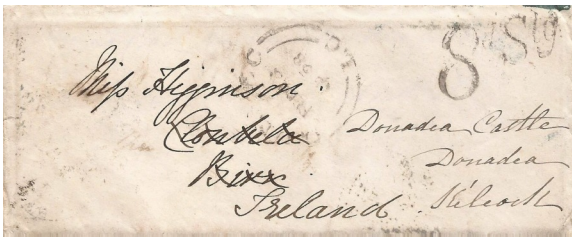 Miss Higginson.
Clonbela
Birr
Ireland
Donadea Castle
Donadea
Kilcock
8